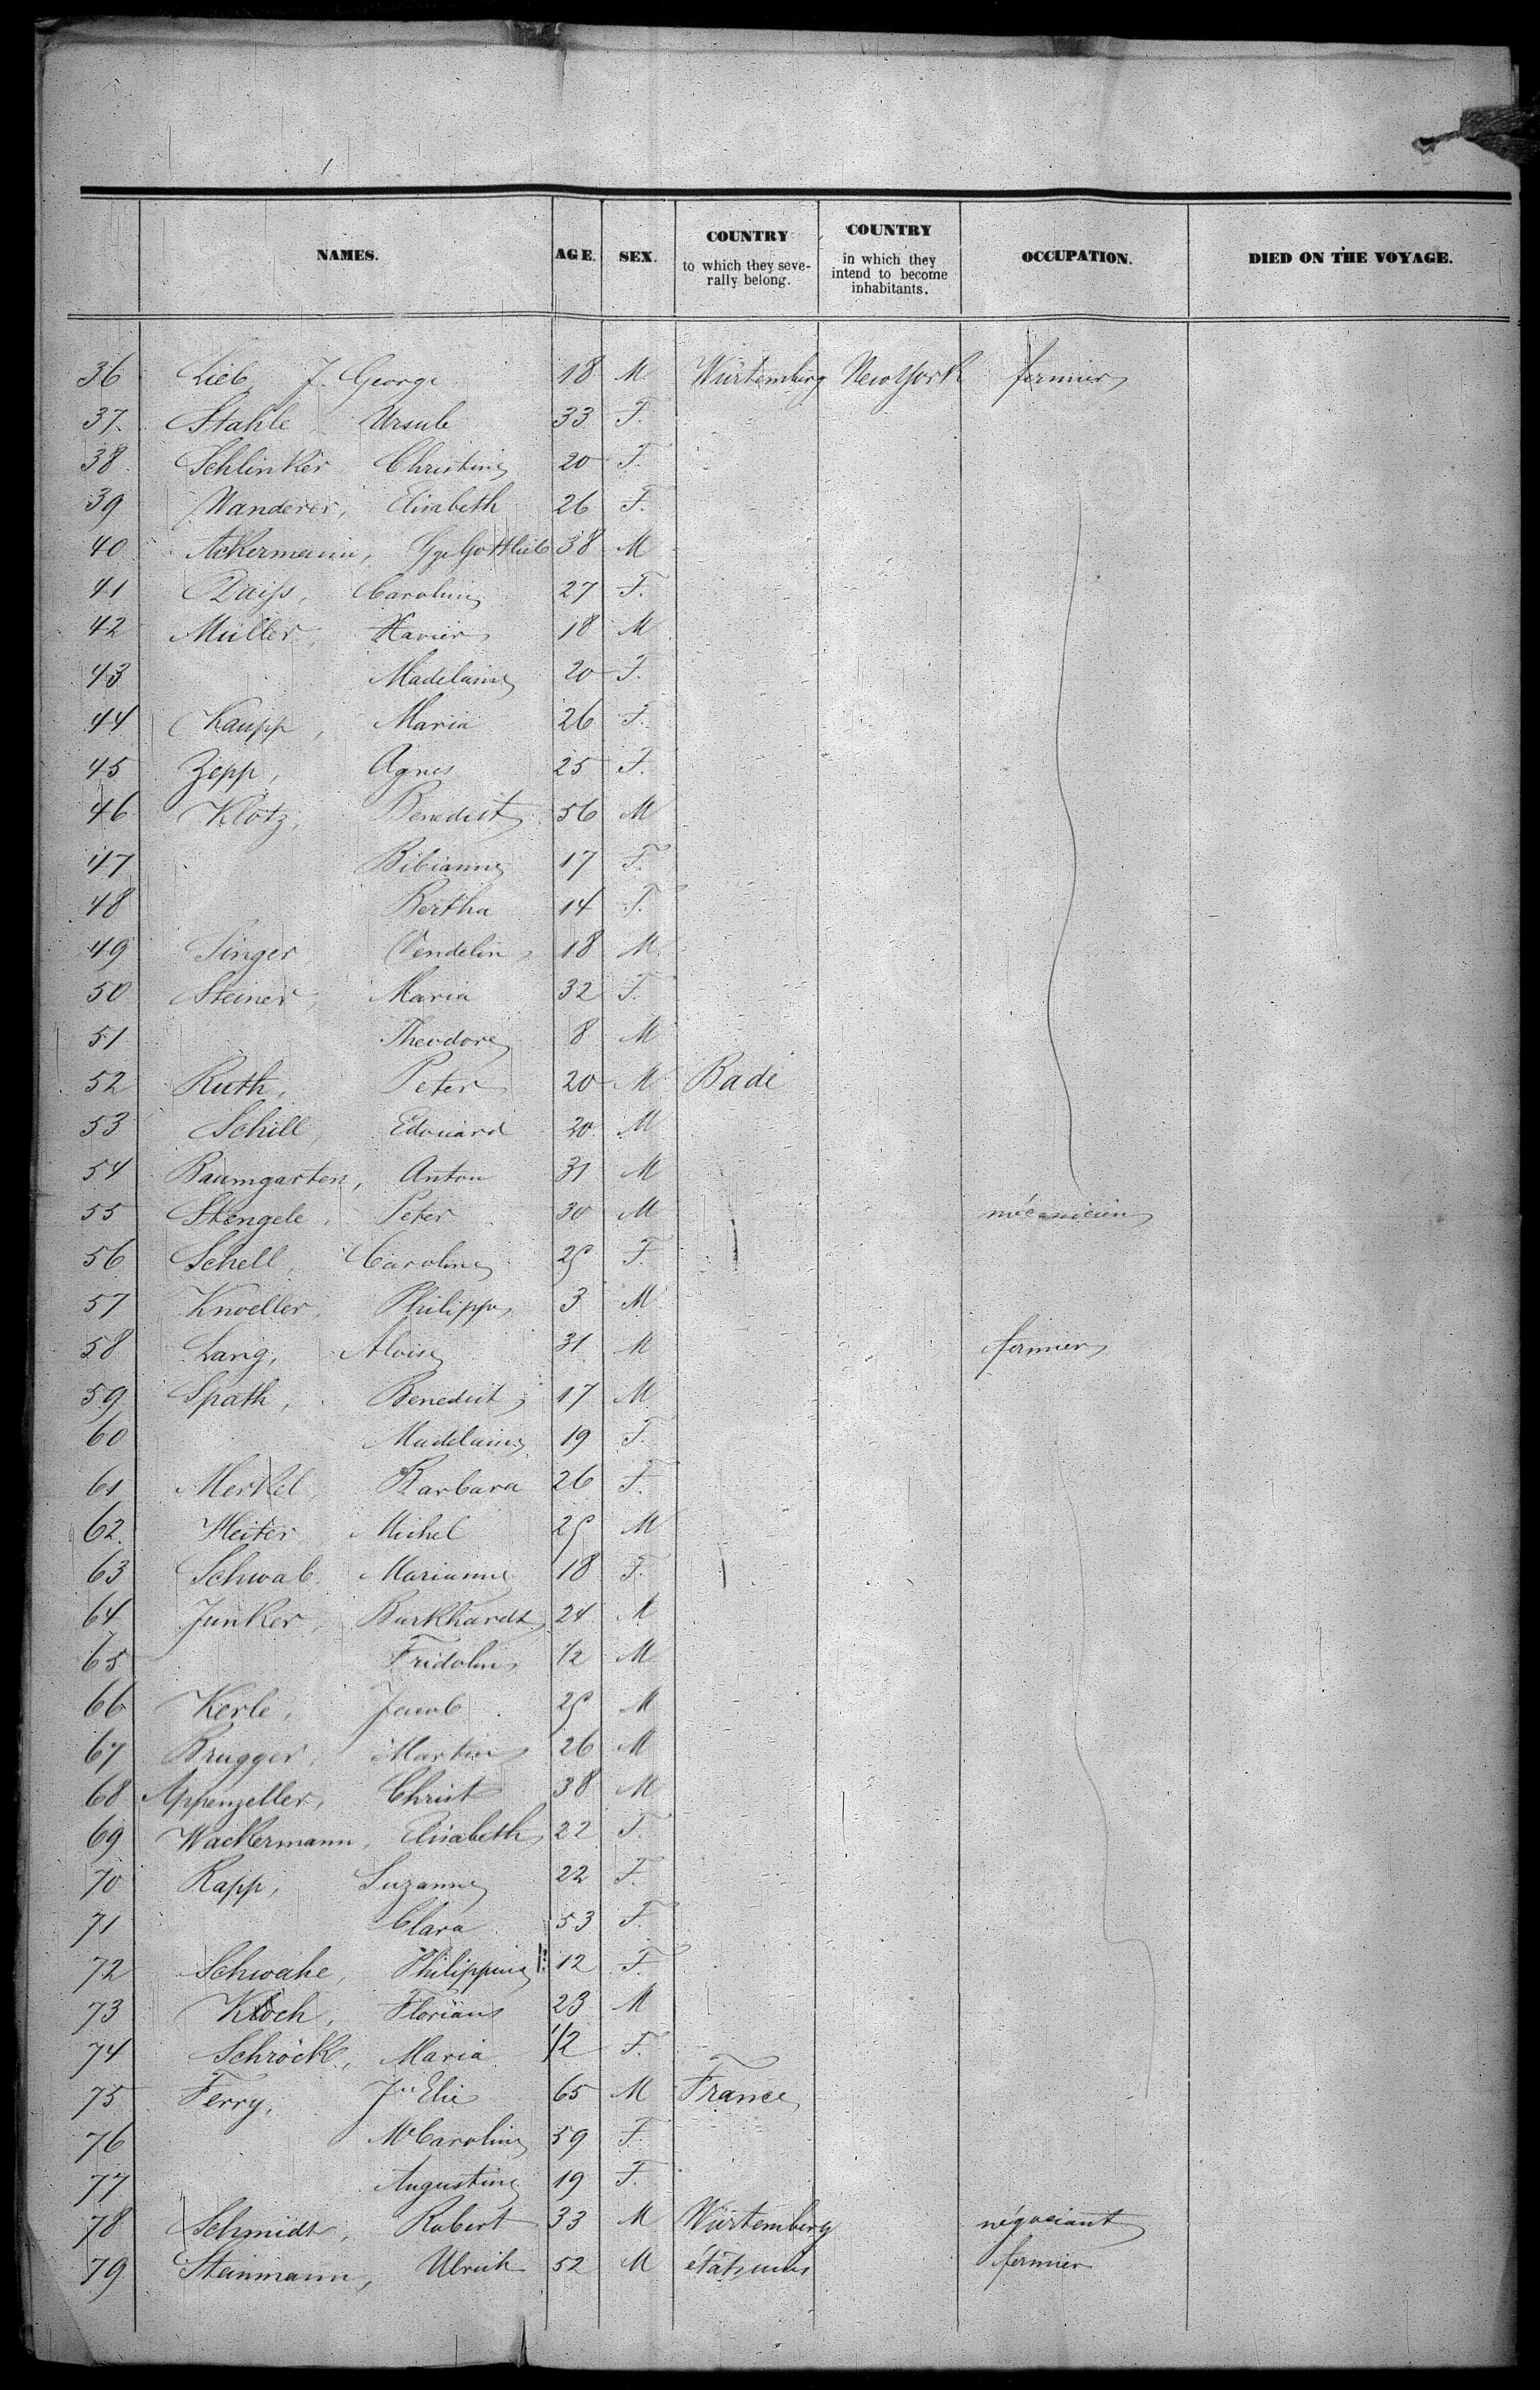 NAMES. AGE. SEX. COUNTRY to which they severally belong. COUNTRY in which they intend to become inhabitants. OCCUPATION. DIED ON THE VOYAGE.
36 Lieb, J. George 18 M. Würtemberg New York fermier
37. Stahle Ursule 33 F.
38. Schlinker Christine 20 F.
39 Wanderer, Elisabeth 26 F.
40 Ackermann, Gge Gottlieb 38 M
41 Daiss, Caroline 27 F.
42 Müller, Xavier 18 M
43 Madelaine 20 F.
44 Kaupp, Maria 26 F.
45 Zepp, Agnes 25 F.
46 Klotz, Benedict 56 M
47 Bibianne 17 F.
48 Bertha 14 F.
49 Singer Vendelin 18 M.
50 Steiner, Maria 32 F.
51 Theodore 8 M
52 Ruth, Peter 20 M Bade
53 Schill, Edouard 20 M
54 Baumgarten, Anton 31 M
55 Stengele, Peter 30 M mécanicien
56 Schell, Caroline 25 F.
57 Knoeller, Philippe 3 M
58 Lang, Aloise 31 M fermier
59 Spath, Benedict 17 M
60 Madelaine 19 F.
61 Merkel, Barbara 26 F.
62. Heiter, Michel 25 M
63 Schwab. Marianne 18 F.
64 Junker, Burkhardt 24 M
65 Fridolin 1/2 M
66 Kerle, Jacob 25 M
67 Brugger, Martin 26 M
68 Appenzeller, Christ 38 M
69 Wackermann, Elisabeth 22 F.
70 Rapp, Suzanne 22 F.
71 Clara 53 F.
72 Schwake, Philippine 12 F.
73 Koch, Florians 23 M
74 Schröck, Maria 1/2 F.
75 Ferry, Jn Elie 65 M France
76 Me Caroline 59 F.
77 Augustine 19 F.
78 Schmidt, Robert 33 M Würtemberg négociant
79 Steinmann, Ulrich 52 M états unis fermier